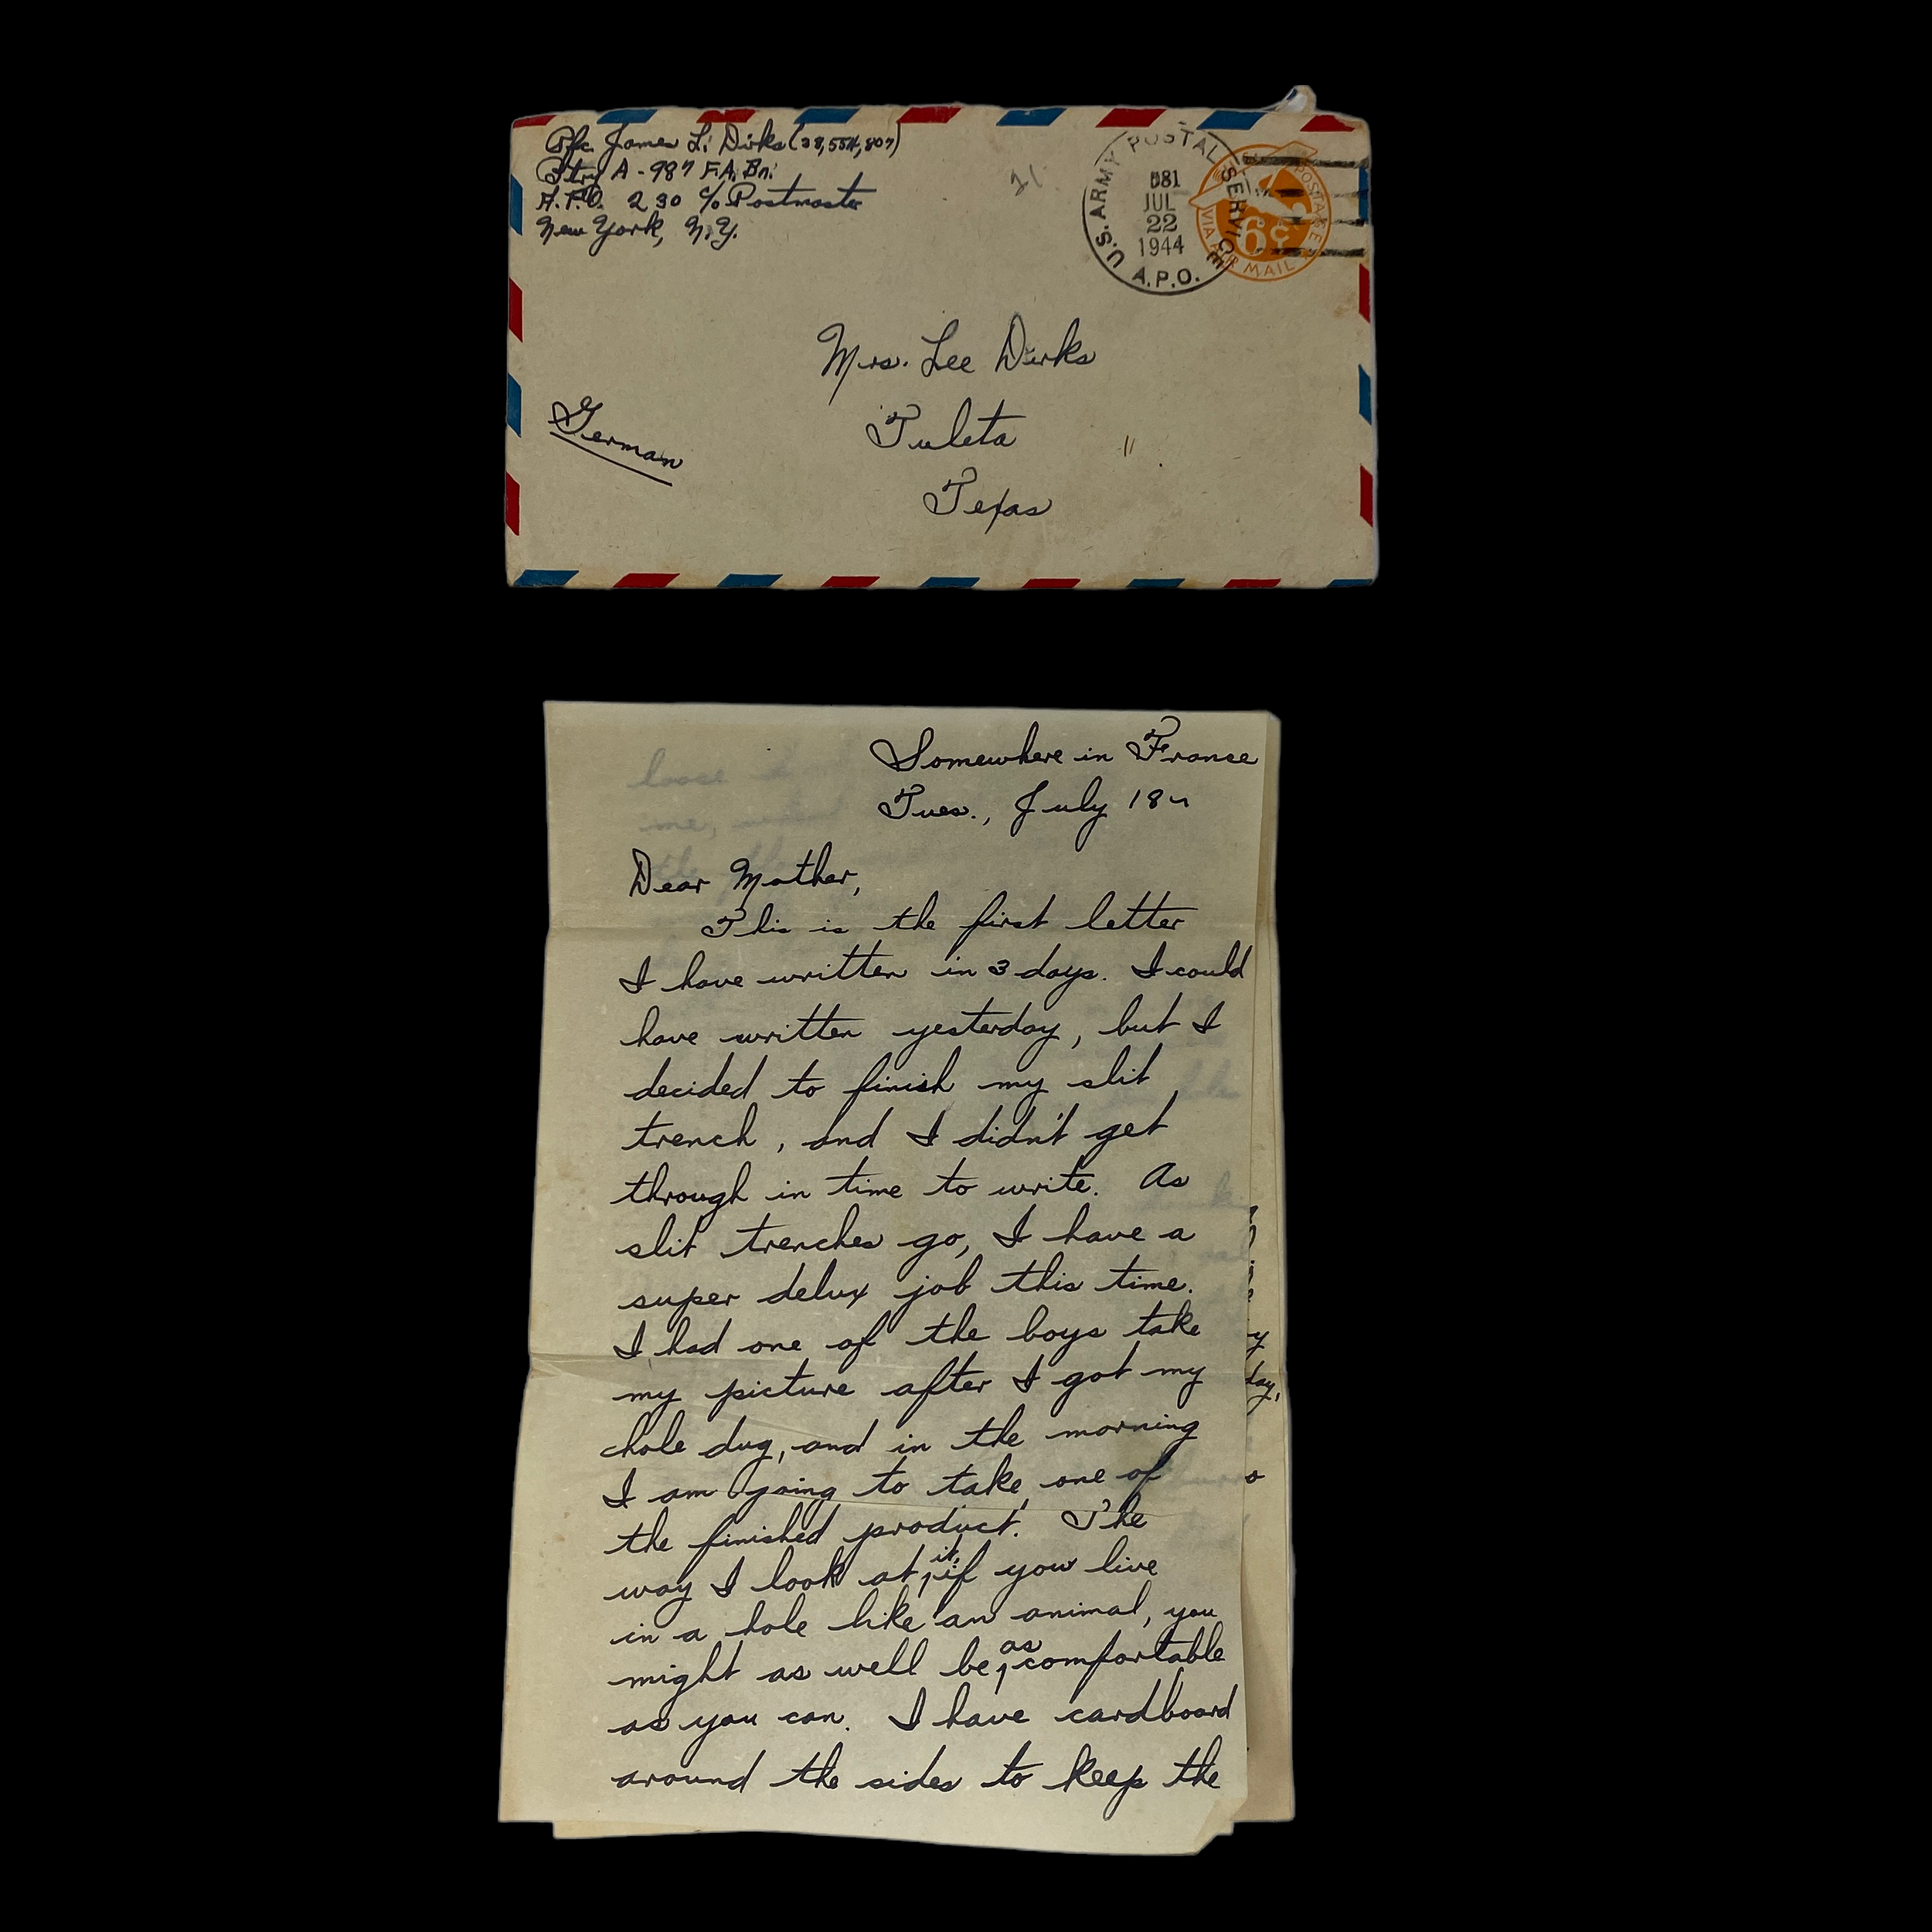 Pfc. James L. Dirks (38,554,807)
Btry A - 987 F.A. Bn.
A.P.O. 230 c/o Postmaster
New York, N.Y.
U.S. ARMY POSTAL SERVICE
A.P.O.
JUL
22
1944
VIA AIR MAIL
POSTAGE
6¢
Mrs. Lee Dirks
Tuleta
Texas
German
Somewhere in France
Tues., July 18
Dear Mother,
This is the first letter
I have written in 3 days. I could
have written yesterday, but I
decided to finish my slit
trench, and I didn't get
through in time to write. As
slit trenches go, I have a
super delux job this time.
I had one of the boys take
my picture after I got my
hole dug, and in the morning
I am going to take one of
the finished product. The
way I look at it, if you live
in a hole like an animal, you
might as well be as comfortable
as you can. I have cardboard
around the sides to keep the